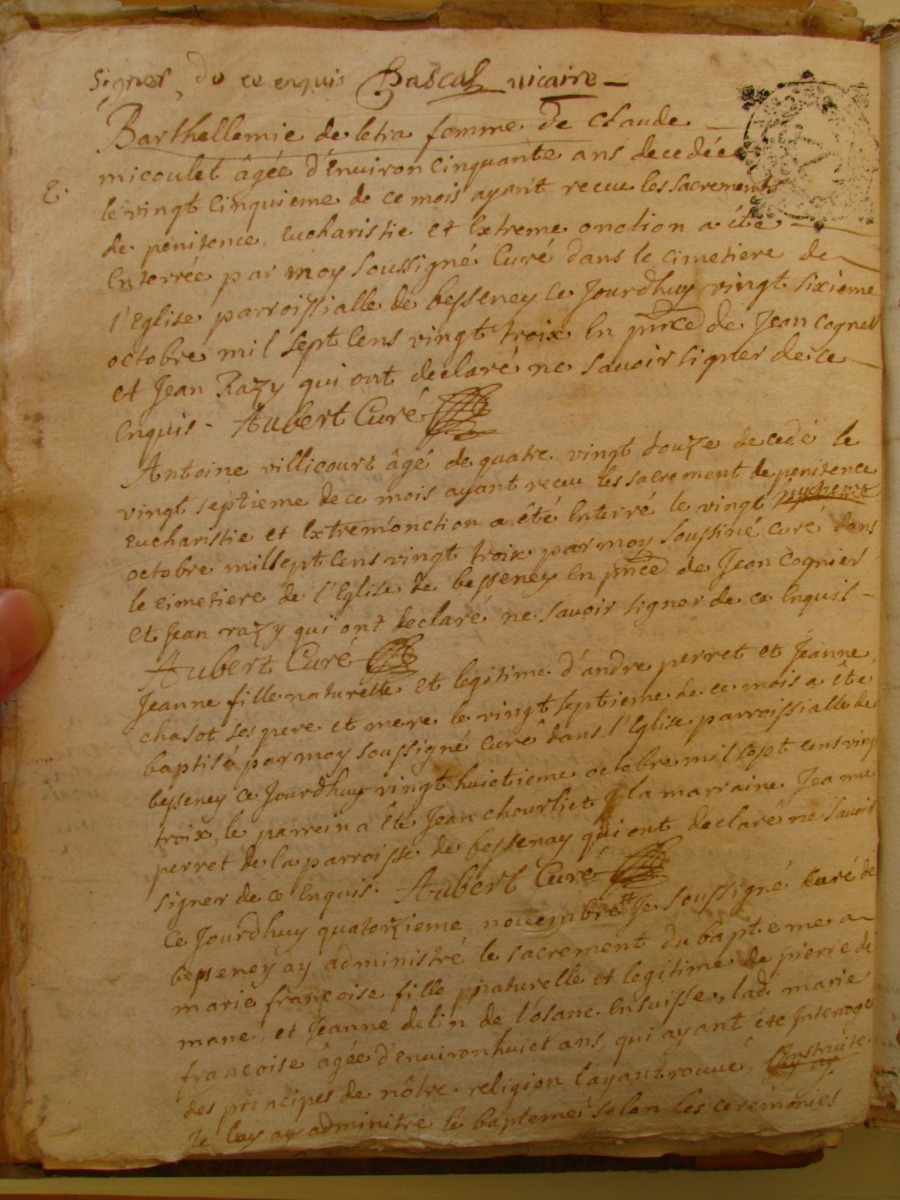 signer de ce enquis Pascal vicaire
Barthellemie de letra femme de claude
micoulet âgée d'environ cinquante ans decedée
E.
le vingt cinquieme de ce mois ayant receu les sacrements
de penitence, eucharistie et extreme onction a été
enterrée par moy soussigné Curé dans le cimetiere de
l'Eglise parroissialle de besseney ce jourdhuy vingt sixieme
octobre mil sept cens vingt troix en pnce de Jean Cognet
et Jean Razy qui ont declaré ne savoir signer de ce
enquis. Aubert Curé
Antoine villicourt âgé de quatre vingt douze decedé le
vingt septieme de ce mois ayant receu les sacrement de penitence
eucharistie et extremonction a été enterré le vingt
octobre mil sept cens vingt troix par moy soussiné curé dans
le cimetiere de l'Eglise de besseney en pnce de Jean Cognier
et Jean razy qui ont declaré ne savoir signer de ce enquis
Aubert Curé
Jeanne fille naturelle et legitime d'andre perret et Jeanne
chasot ses pere et mere le vingt septieme de ce mois a été
baptisé par moy soussigné curé dans l'Eglise parroissialle de
besseney ce jourdhuy vingt huictieme octobre mil sept cens vingt
troix, le parrein a été Jean chourliet la marraine Jeanne
perret de la parroisse de bessenay qui ont declaré ne savoir
signer de ce enquis. Aubert Curé
Ce jourdhuy quatorzieme novembre Je soussigné curé de
besseney ay administré le sacrement du bapteme a
marie françoise fille naturelle et legitime de pierre de
mane, et Jeanne delin de l'osane en suisse, lad. marie
francoise âgée d'environ huict ans, qui ayant été interrogé
des principes de nôtre religion l'ayant trouvé instruite
Je lay ay adminitre le bapteme selon les ceremonies